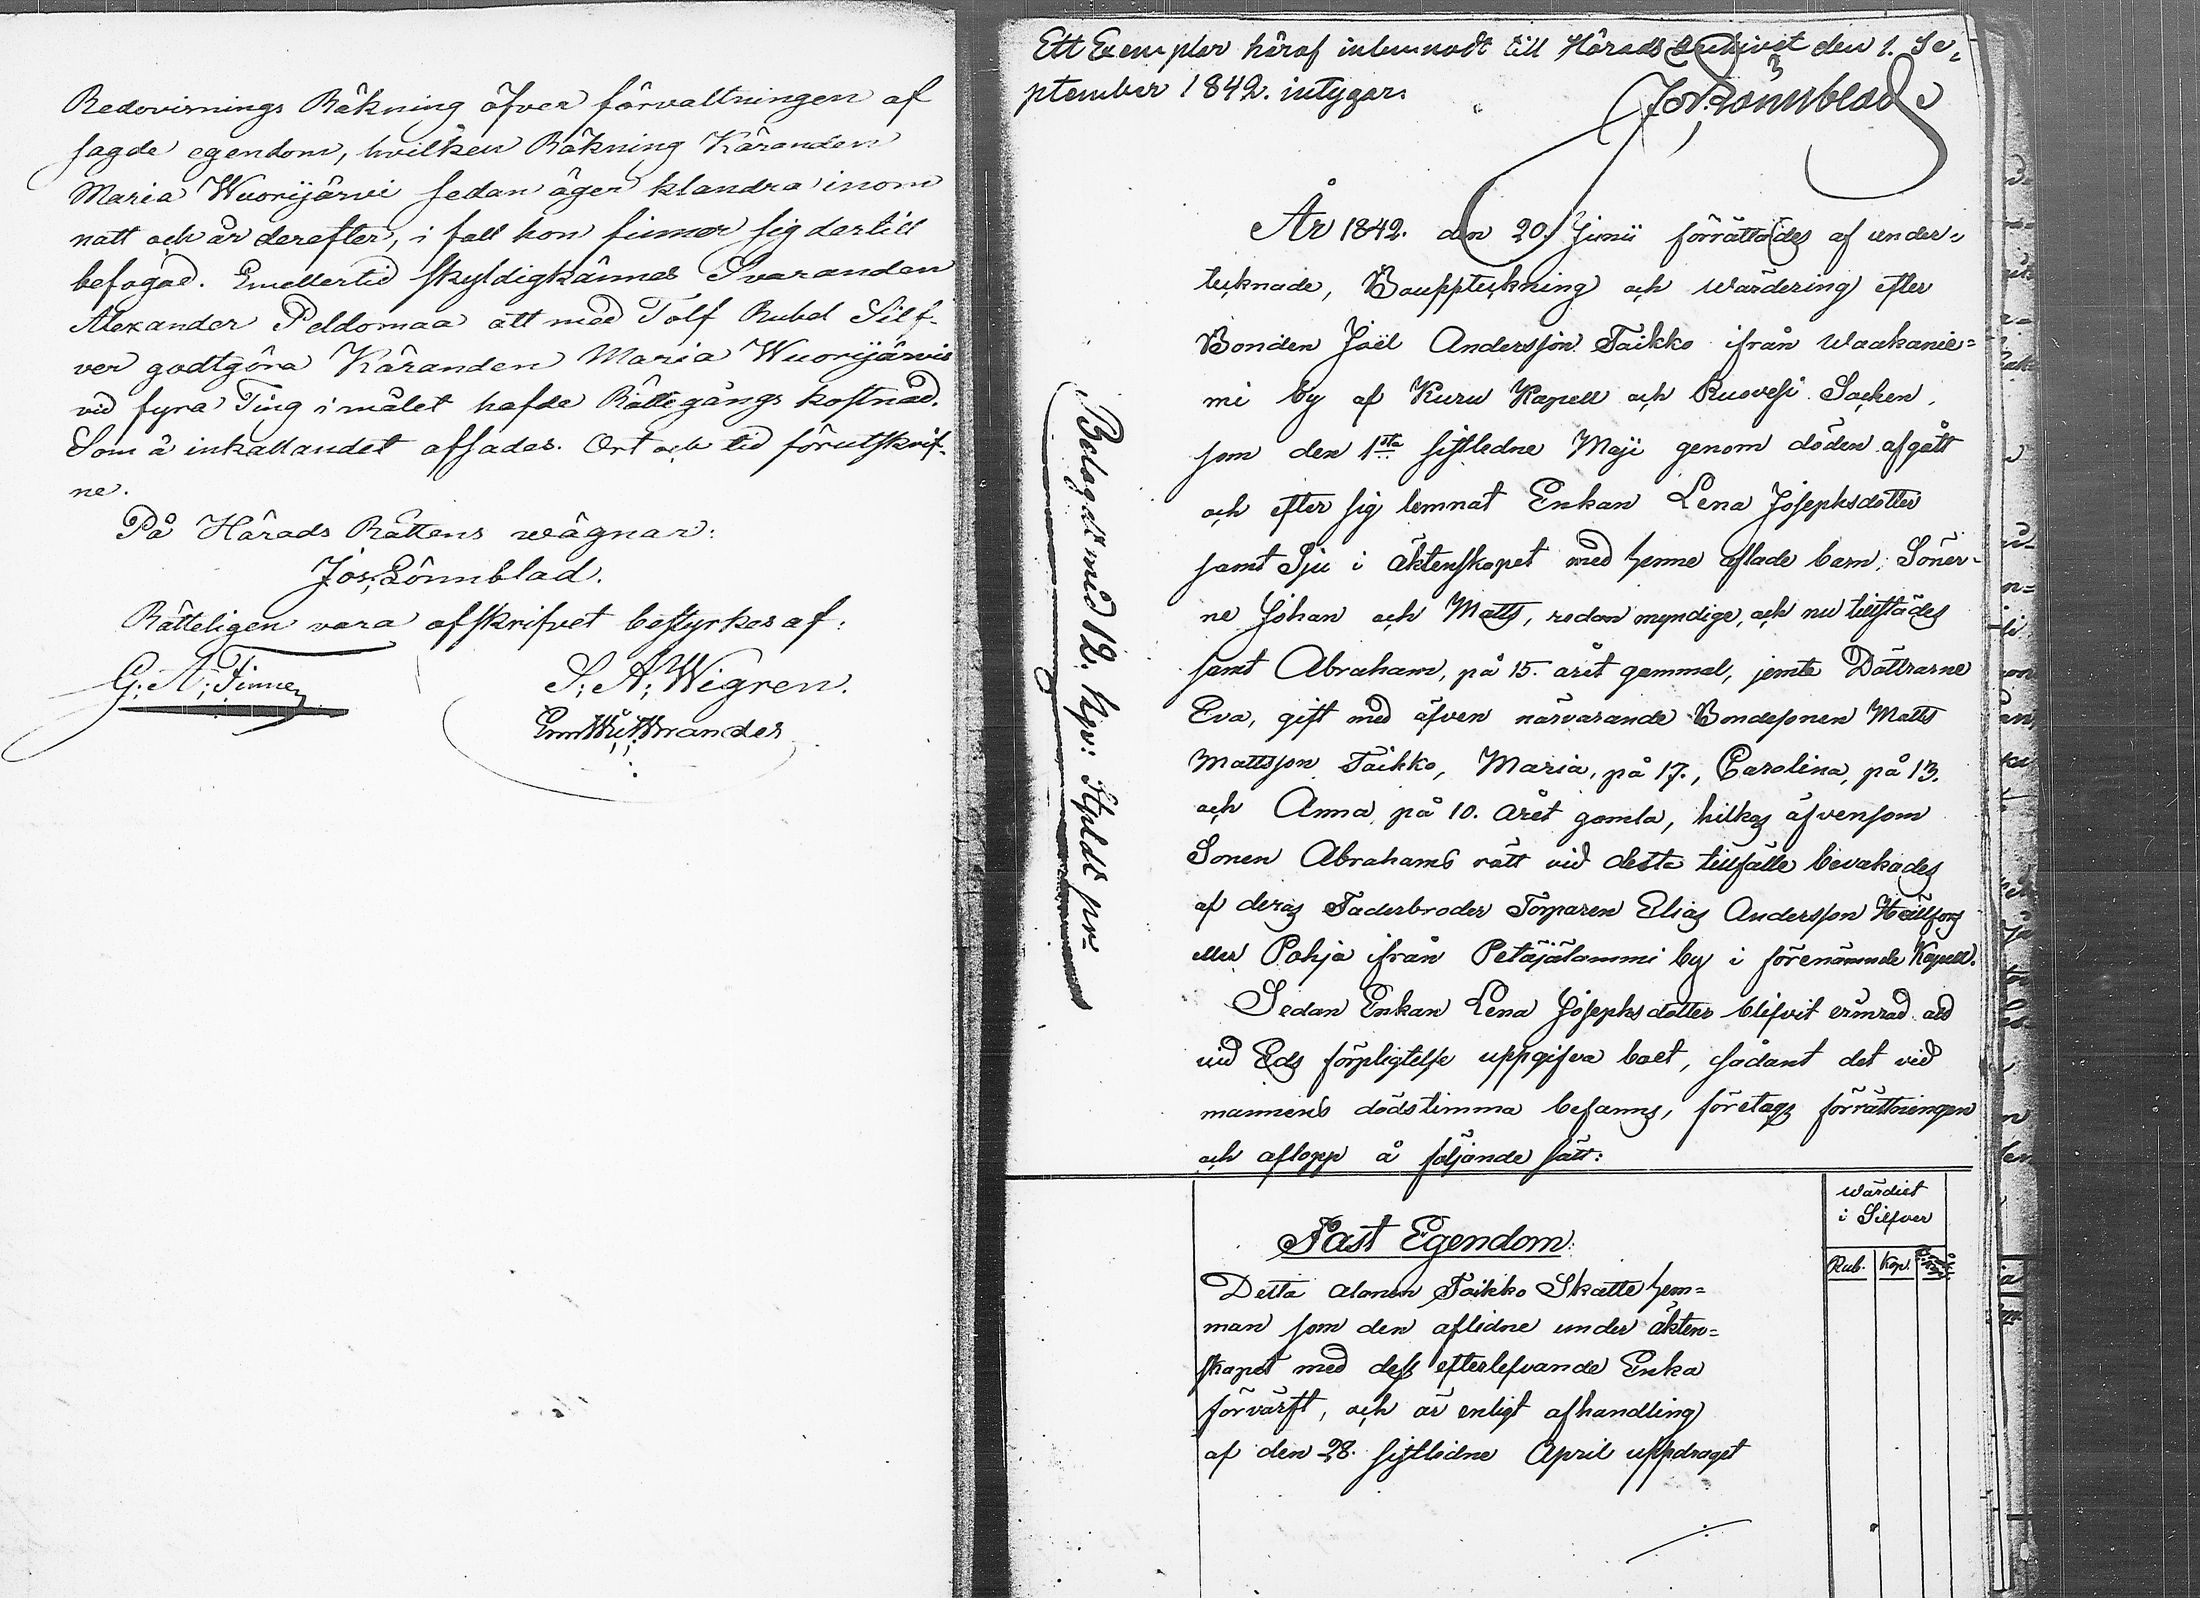 Redovisnings Räkning öfver förvaltningen af
sagde egendom, hvilken Räkning Käranden
Maria Wuorijärvi sedan äger klandra inom
natt och år derefter, i fall hon finner sig dertill
befogad. Emellertid skyldigkännes Svaranden
Alexander Peldomaa att med Tolf Rubel Silf-
ver godtgöra Käranden Maria Wuorijärvis
vid fyra Ting i målet hafde Rättegångs kostnad.
Som å inkallandet afsades. Ort och tid förutskrif-
ne.
På Härads Rättens wägnar:
Jos. Lönnblad.
Rätteligen vara afskrifvet bestyrkes af:
G: A: Finne
S: A: Wigren.
Ett Exemplar häraf inlemnadt till Härads Arkivet den 1. Se-
ptember 1842. intygar.
Jos. Lönnblad
Belagdt med 12. kpr: Stpldt ppr
År 1842. den 20. Junii förrättades af under-
tecknade, Bouppteckning och wärdering efter
Bonden Joël Andersson Taikko ifrån Waakanie=
mi by af Kuru Kapell och Ruovesi Socken,
som den 1sta sistledne Maji genom döden afgått
och efter sig lemnat Enkan Lena Josephsdotter
samt Sju i äktenskapet med henne aflade barn, Söner-
ne Johan och Matts, redan myndige, och nu tillstädes
samt Abraham, på 15. året gammal, jemte Döttrarne
Eva, gift med äfven närvarande Bondesonen Matts
Mattsson Taikko, Maria, på 17., Carolina, på 13.
och Anna, på 10. året gamla, hilkas äfvensom
Sonen Abrahams rätt vid detta tillfälle bevakades
af deras Faderbroder Torparen Elias Andersson Hällfors
eller Pohja ifrån Petäjälammi by i förenämnde Kapell.
Sedan Enkan Lena Josephsdotter blifvit erinrad att
vid Eds förpligtelse uppgifva boet, sådant det vid
mannens dödstimma befanns, företags förrättningen
och aflopp å följande sätt:
Wärdiet
i Silfver
Rub. Kop.
Fast Egendom:
Detta Taikko Skatte hem=
man som den aflidne under äkten=
skapet med dess efterlefvande Enka
förvärft, och är enligt afhandling
af den 28. sistledne April uppdraget